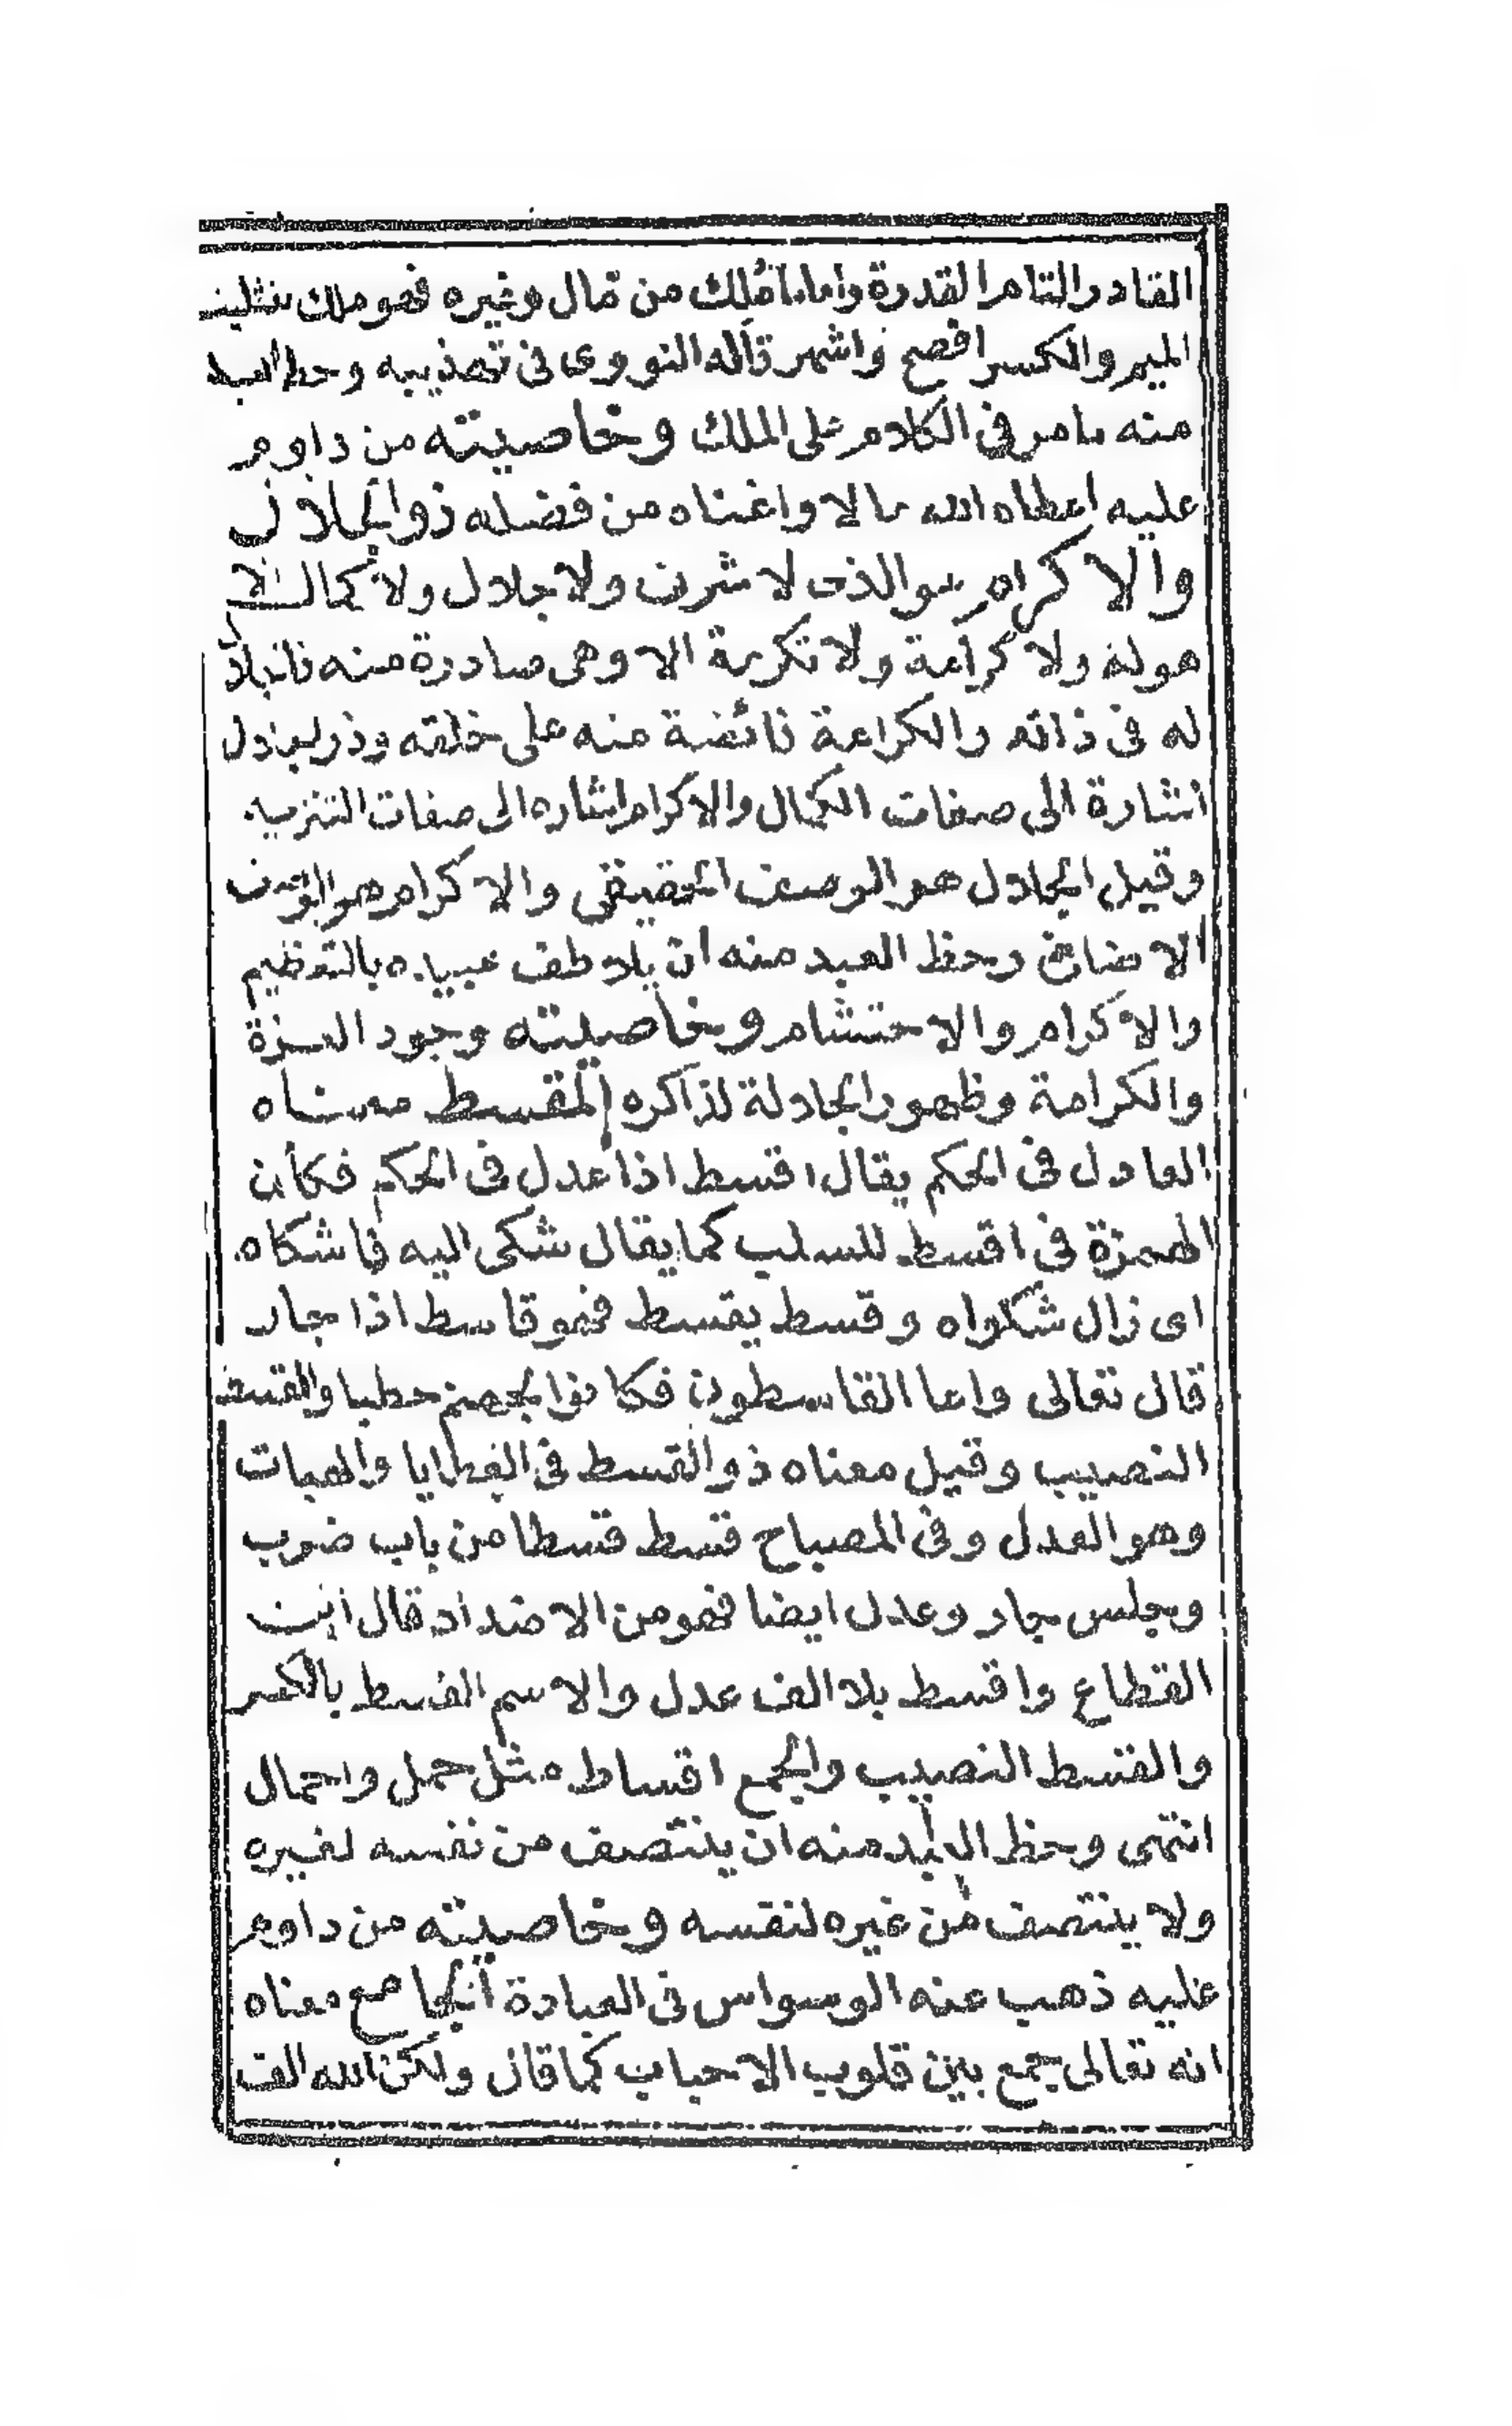 القادر التام القدرة واما ما مُلِك من مال وغيره فهو ملك بتثليث
الميم والكسر افصح واشهر قاله النووى فى تهذيبه وحظ العبد
منه ما مر فى الكلام على الملك وخاصيته من داوم
عليه اعطاه الله مالا واغناه من فضله ذو الجلال
والاكرام هو الذى لا شرف ولا جلال ولا كمال الا
هو له ولا كرامة ولا تكرمة الا وهى صادرة منه فالجلال
له فى ذاته والكرامة فائضة منه على خلقه وذو الجلال
اشارة الى صفات الكمال والاكرام اشاره الى صفات التنزيه
وقيل الجلال هو الوصف الحقيقى والاكرام هو الوصف
الاضافى وحظ العبد منه ان يلاطف عبيده بالتعظيم
والاكرام والاحتشام وخاصيته وجود العزة
والكرامة وظهور الجلالة لذاكره المقسط معناه
العادل فى الحكم يقال اقسط اذا عدل فى الحكم فكأن
الهمزة فى اقسط للسلب كما يقال شكى اليه فاشكاه
اى زال شكواه وقسط يقسط فهو قاسط اذا جار
قال تعالى واما القاسطون فكانوا لجهنم حطبا والقسط
النصيب وقيل معناه ذو القسط فى العطايا والهبات
وهو العدل وفى المصباح قسط قسطا من باب ضرب
وجلس جار وعدل ايضا فهو من الاضداد قال ابن
القطاع واقسط بالالف عدل والاسم القسط بالكسر
والقسط النصيب والجمع اقساط مثل حمل واحمال
انتهى وحظ العبد منه ان ينتصف من نفسه لغيره
ولا ينتصف من غيره لنفسه وخاصيته من داوم
عليه ذهب عنه الوسواس فى العبادة الجامع معناه
انه تعالى جمع بين قلوب الاحباب كما قال ولكن الله الف